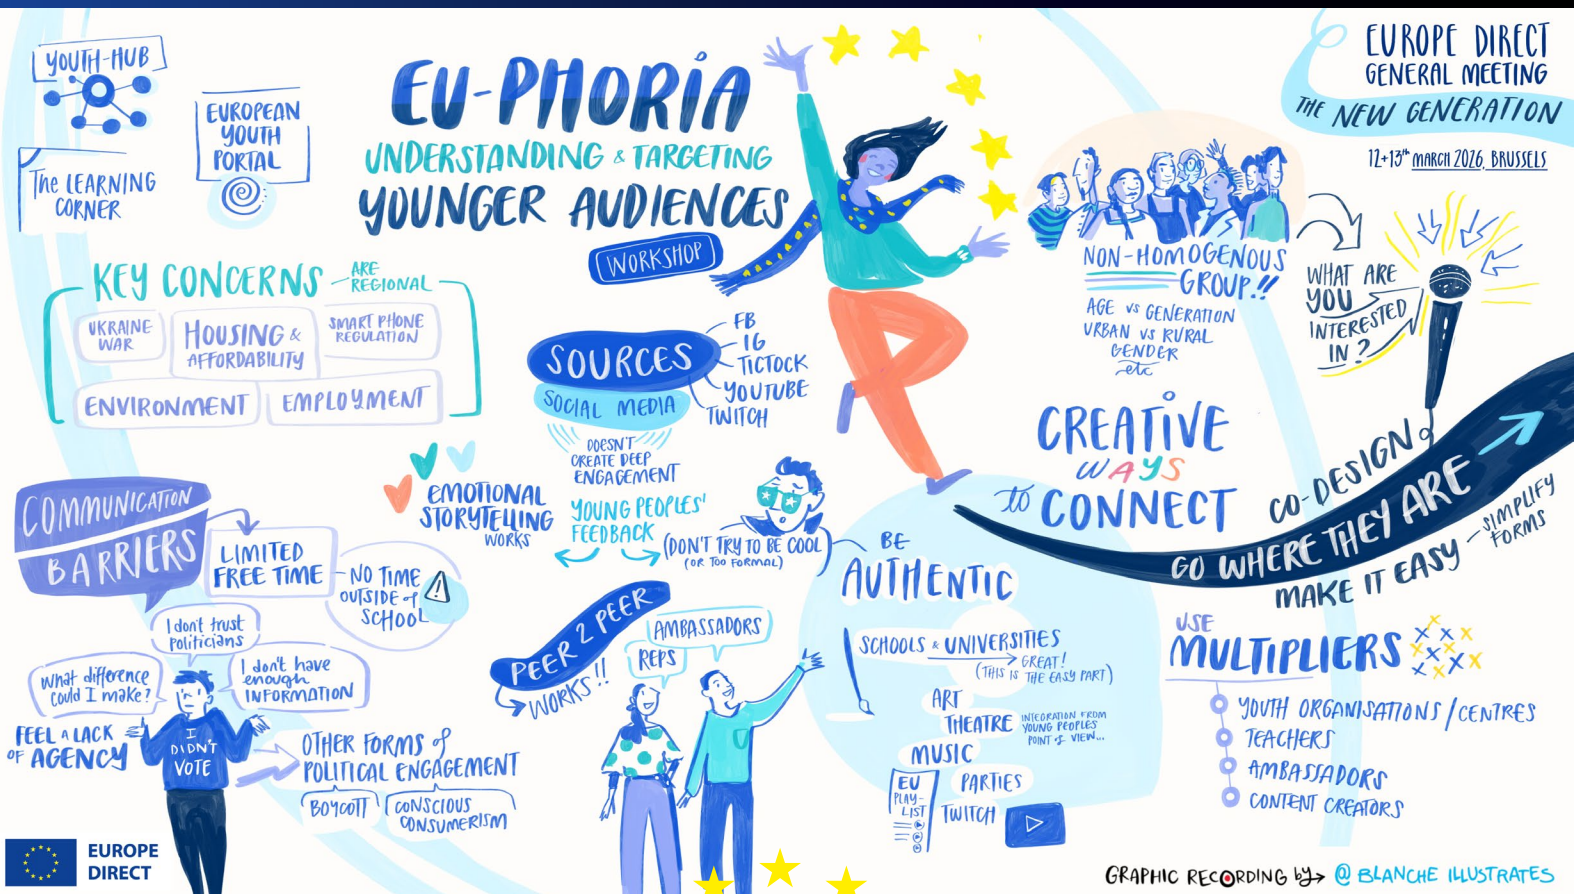 YOUTH-HUB
EUROPEAN
YOUTH
PORTAL
The LEARNING
CORNER
EU-PHORiA
UNDERSTANDING & TARGETING
YOUNGER AUDIENCES
WORKSHOP
EUROPE DIRECT
GENERAL MEETING
THE NEW GENERATION
12+13th MARCH 2026, BRUSSELS
KEY CONCERNS
ARE
REGIONAL
UKRAINE
WAR
HOUSING &
AFFORDABILITY
SMART PHONE
REGULATION
ENVIRONMENT
EMPLOYMENT
SOURCES
SOCIAL MEDIA
FB
IG
TICTOCK
YOUTUBE
TWITCH
DOESN'T
CREATE DEEP
ENGAGEMENT
EMOTIONAL
STORYTELLING
WORKS
YOUNG PEOPLES'
FEEDBACK
(DON'T TRY TO BE COOL
(OR TOO FORMAL)
BE
AUTHENTIC
NON-HOMOGENOUS
GROUP!!
AGE vs GENERATION
URBAN vs RURAL
GENDER
etc
WHAT ARE
YOU
INTERESTED
IN?
CREATiVE
WAYS
to CONNECT
CO-DESIGN
GO WHERE THEY ARE
MAKE IT EASY
SIMPLIFY
FORMS
COMMUNICATION
BARRIERS
LIMITED
FREE TIME
NO TIME
OUTSIDE of
SCHOOL
I don't trust
politicians
What difference
could I make?
I don't have
enough
INFORMATION
FEEL A LACK
OF AGENCY
I
DIDN'T
VOTE
OTHER FORMS of
POLITICAL ENGAGEMENT
BOYCOTT
CONSCIOUS
CONSUMERISM
PEER 2 PEER
WORKS!!
AMBASSADORS
REPS
SCHOOLS & UNIVERSITIES
GREAT!
(THIS IS THE EASY PART)
ART
THEATRE
INTEGRATION FROM
YOUNG PEOPLES
POINT of VIEW...
MUSIC
EU
PLAY-
LIST
PARTIES
TWITCH
USE
MULTIPLIERS
YOUTH ORGANISATIONS / CENTRES
TEACHERS
AMBASSADORS
CONTENT CREATORS
EUROPE
DIRECT
GRAPHIC RECORDING by → @ BLANCHE ILLUSTRATES